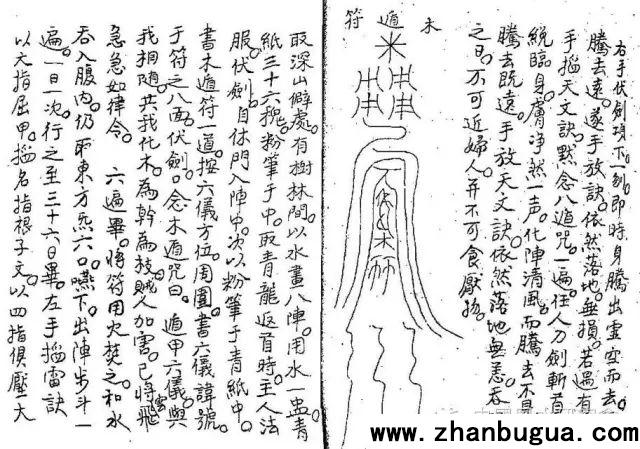 右手伏劍項下一刎即時身騰出虛空而去。
騰去遠。遂手放訣。依然落地。無損。若遇有
手掐天文訣。默念八道咒。一遍任人刀劍斬首
纔臨身膚淨然一声。化陣清風。而騰去不見
騰去既遠手放天文訣。依然落地無恙。吞
之日。不可近婦人。并不可食厭物。
木遁符
取深山僻處。有樹林間。以水畫八陣。用水一盅。青
紙三十六塊。粉筆于中。取青龍返首時。主人法
服伏劍。自休門入陣中。次以粉筆于青紙中。
書木遁符一道。按六儀方位。周圍書六儀諱號。
于符之八面。伏劍。念木遁咒曰。遁甲六儀。與
我相隨。共我化木。為幹為枝。賊人加害。已將飛
急急如律令。 六遍畢。將符用火焚之。和水
吞入腹內。仍取東方炁六口。嚥下。出陣步斗一
遍。一日一次。行之至三十六日畢。左手掐雷訣
以大指屈甲。掐名指根子文。以四指俱壓大
www.zhanbugua.com